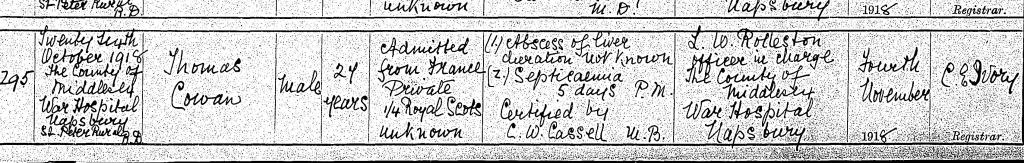 St Peter Rural
R.D.
unknown
M.D.
Napsbury
1918
Registrar.
295
Twenty Sixth
October 1918
The County of
Middlesex
War Hospital
Napsbury
St Peter Rural
R.D.
Thomas
Cowan
Male
24
years
Admitted
from France
Private
1/4 Royal Scots
unknown
(1) Abscess of liver
duration not known
(2) Septicaemia
5 days P.M.
Certified by
C. W. Cassell M.B.
L. W. Rolleston
officer in charge
The County of
Middlesex
War Hospital
Napsbury
Fourth
November
1918
C. E. Ivory
Registrar.